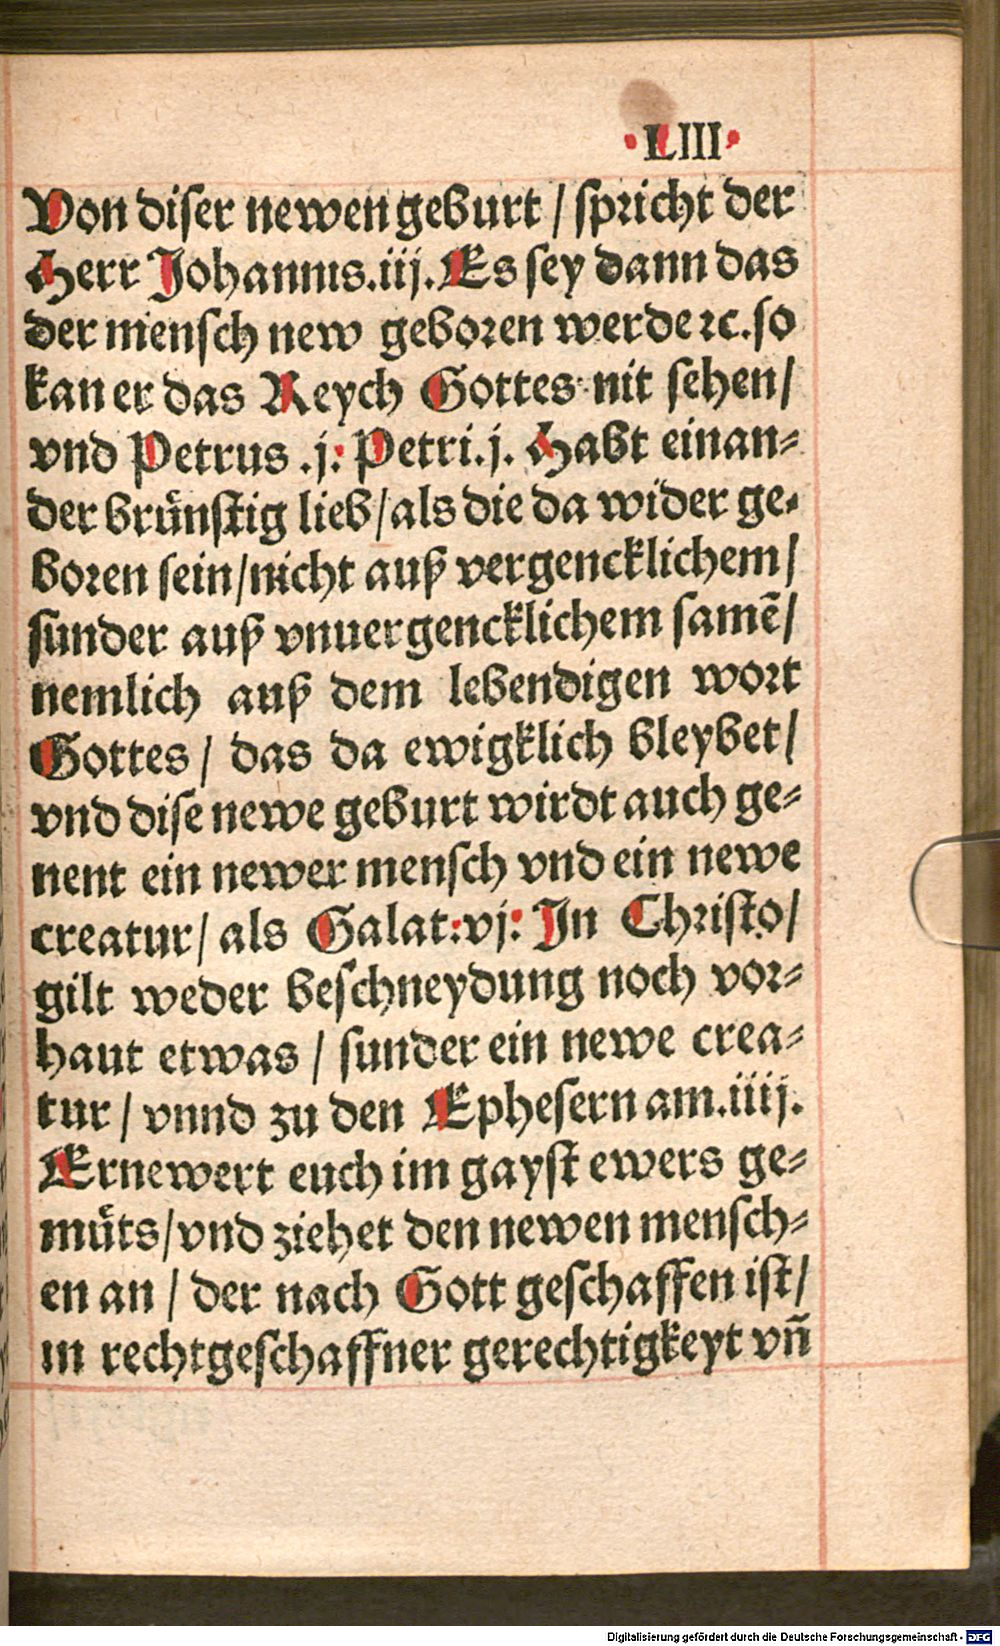 ·LIII·
Von diser newen geburt / spricht der
Herr Johannis.iij. Es sey dann das
der mensch new geboren werde ꝛc. so
kan er das Reych Gottes nit sehen/
vnd Petrus .j: Petri.j. Habt einan-
der brůnstig lieb/als die da wider ge-
boren sein/nicht auß vergencklichem/
sunder auß vnuergencklichem samẽ/
nemlich auß dem lebendigen wort
Gottes / das da ewigklich bleybet/
vnd dise newe geburt wirdt auch ge-
nent ein newer mensch vnd ein newe
creatur/ als Galat:vj: In Christo/
gilt weder beschneydung noch vor-
haut etwas / sunder ein newe crea-
tur / vnnd zu den Ephesern am.iiij.
Ernewert euch im gayst ewers ge-
můts/vnd ziehet den newen mensch-
en an / der nach Gott geschaffen ist/
in rechtgeschaffner gerechtigkeyt vñ
Digitalisierung gefördert durch die Deutsche Forschungsgemeinschaft - DFG